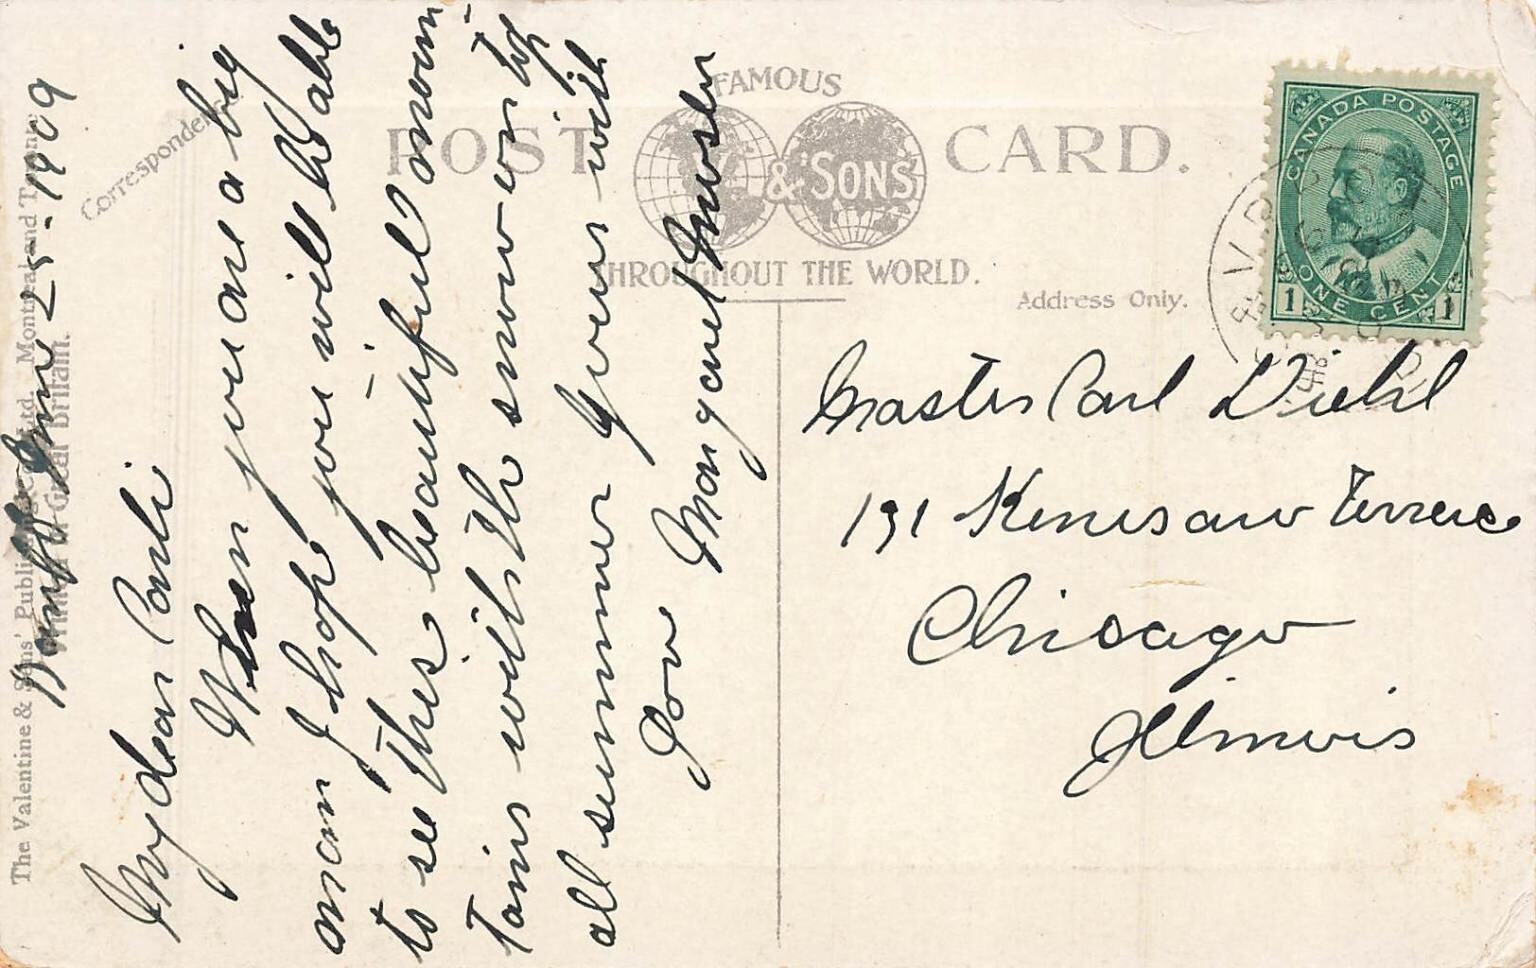 The Valentine & Sons' Publishing Co. Ltd. Montreal and Toronto.
Printed in Great Britain.
Correspondence.
FAMOUS
POST CARD.
& SONS
THROUGHOUT THE WORLD.
Address Only.
CANADA POSTAGE
1 ONE CENT 1
Banff 25-1909
My dear Carl
When you are a big
man I hope you will be able
to see this beautiful moun-
tains with the snow on top
all summer Yours with
love Margaret
Master Carl Diehl
191 Kenesaw Terrace
Chicago
Illinois